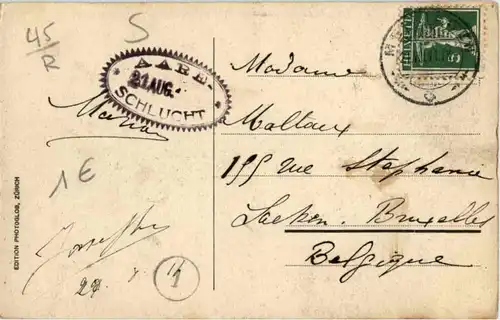 45
R
S
AARE-
21 AUG.
SCHLUCHT
HELVETIA
Madame
Maltaux
155 rue Stephanie
Laeken. Bruxelles
Belgique
1€
1
EDITION PHOTOGLOB, ZÜRICH